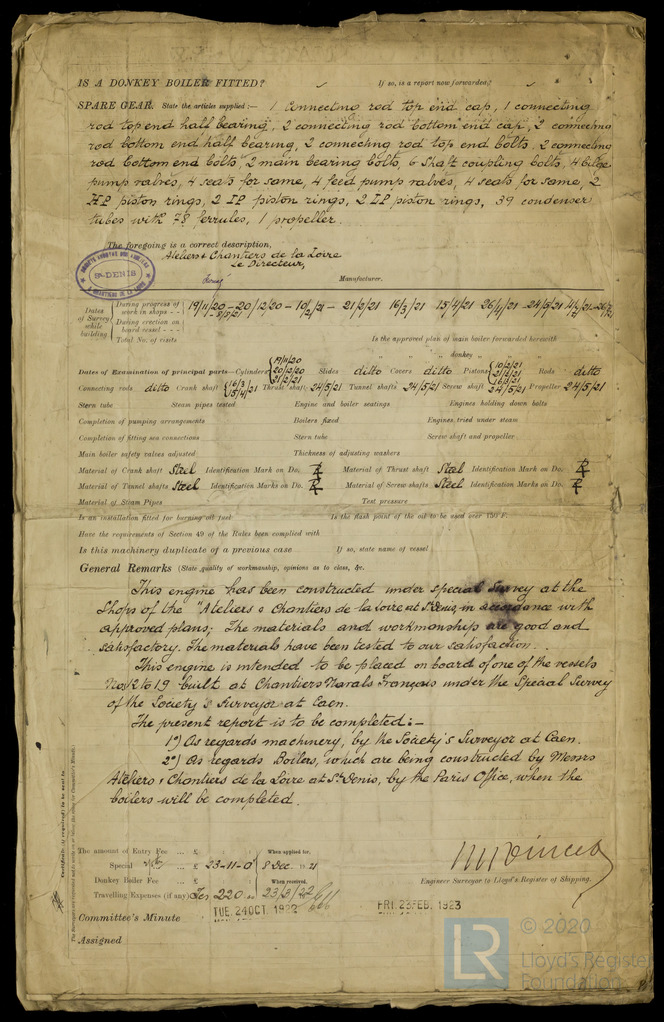 IS A DONKEY BOILER FITTED? ✓ If so, is a report now forwarded? ✓
SPARE GEAR. State the articles supplied:— 1 connecting rod top end cap, 1 connecting
rod top end half bearing, 2 connecting rod bottom end cap, 2 connecting
rod bottom end half bearing, 2 connecting rod top end bolts, 2 connecting
rod bottom end bolts, 2 main bearing bolts, 6 shaft coupling bolts, 4 bilge
pump valves, 4 seats for same, 4 feed pump valves, 4 seats for same, 2
HP piston rings, 2 IP piston rings, 2 LP piston rings, 39 condenser
tubes with 78 ferrules, 1 propeller.
The foregoing is a correct description,
Ateliers & Chantiers de la Loire
Le Directeur,
Manufacturer.
St-DENIS
Dates of Survey while building
During progress of work in shops - - 19/11/20 - 20/12/20 - 10/2/21 - 21/2/21 16/3/21 15/4/21 26/4/21 24/5/21
During erection on board vessel - - -
Total No. of visits
Is the approved plan of main boiler forwarded herewith
" " " donkey " " "
Dates of Examination of principal parts—Cylinders 19/11/20 20/12/20 21/2/21 Slides ditto Covers ditto Pistons 10/2/21 21/2/21 16/3/21 Rods ditto
Connecting rods ditto Crank shaft 16/3/21 15/4/21 Thrust shaft 24/5/21 Tunnel shafts 24/5/21 Screw shaft 24/5/21 Propeller 24/5/21
Stern tube Steam pipes tested Engine and boiler seatings Engines holding down bolts
Completion of pumping arrangements Boilers fixed Engines tried under steam
Completion of fitting sea connections Stern tube Screw shaft and propeller
Main boiler safety valves adjusted Thickness of adjusting washers
Material of Crank shaft Steel Identification Mark on Do. Material of Thrust shaft Steel Identification Mark on Do.
Material of Tunnel shafts Steel Identification Marks on Do. Material of Screw shafts Steel Identification Marks on Do.
Material of Steam Pipes Test pressure
Is an installation fitted for burning oil fuel Is the flash point of the oil to be used over 150°F.
Have the requirements of Section 49 of the Rules been complied with
Is this machinery duplicate of a previous case If so, state name of vessel
General Remarks (State quality of workmanship, opinions as to class, &c.
This engine has been constructed under special survey at the
Shops of the "Ateliers & Chantiers de la Loire at St Denis, in accordance with
approved plans; The materials and workmanship are good and
satisfactory. The materials have been tested to our satisfaction.
This engine is intended to be placed on board of one of the vessels
Nos 12 to 19 built at Chantiers Navals Français under the Special Survey
of the Society's Surveyor at Caen.
The present report is to be completed:—
1°) As regards machinery, by the Society's Surveyor at Caen.
2°) As regards Boilers, which are being constructed by Messrs
Ateliers & Chantiers de la Loire at St Denis, by the Paris Office, when the
boilers will be completed.
The amount of Entry Fee ... £ When applied for,
Special ... £ 23-11-0 8 Dec. 1921
Donkey Boiler Fee ... £ When received,
Travelling Expenses (if any) Frs 220 23/3/22
Engineer Surveyor to Lloyd's Register of Shipping.
Committee's Minute TUE. 24 OCT. 1922 FRI. 23 FEB. 1923
Assigned
LR
© 2020
Lloyd's Register
Foundation